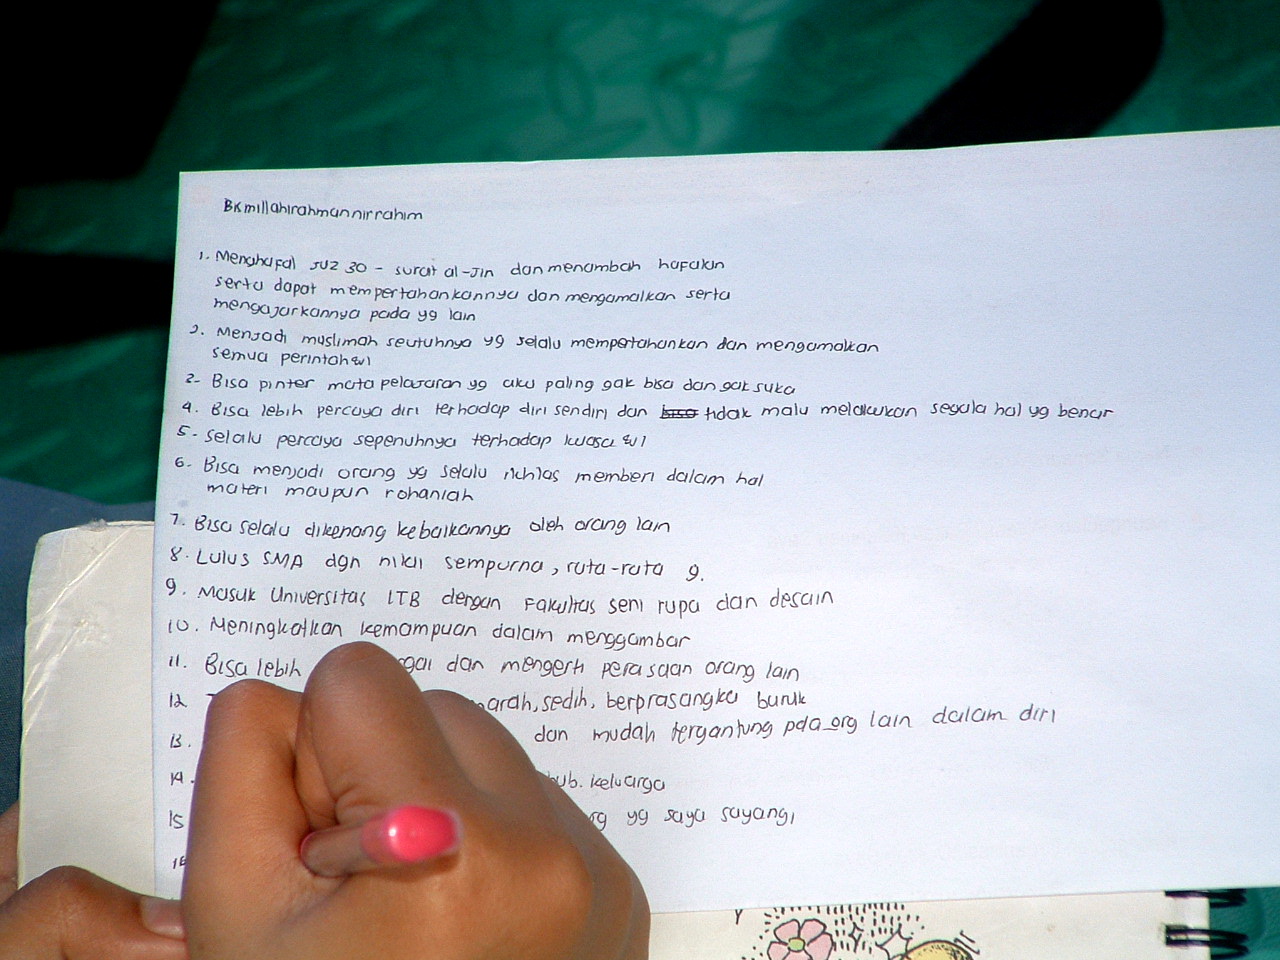 Bismillahirahmannirrahim
1. Menghafal JUZ 30 - surat al-Jin dan menambah hafalan
serta dapat mempertahankannya dan mengamalkan serta
mengajarkannya pada yg lain
2. Menjadi muslimah seutuhnya yg selalu mempertahankan dan mengamalkan
semua perintah
3. Bisa pinter mata pelajaran yg aku paling gak bisa dan gak suka
4. Bisa lebih percaya diri terhadap diri sendiri dan bisa tidak malu melakukan segala hal yg benar
5. Selalu percaya sepenuhnya terhadap kuasa
6. Bisa menjadi orang yg selalu ikhlas memberi dalam hal
materi maupun rohaniah
7. Bisa selalu dikenang kebaikannya oleh orang lain
8. Lulus SMA dgn nilai sempurna, rata-rata 9.
9. Masuk Universitas ITB dengan Fakultas seni rupa dan desain
10. Meningkatkan kemampuan dalam menggambar
11. Bisa lebih dan mengerti perasaan orang lain
12 marah, sedih, berprasangka buruk
13. dan mudah tergantung pda org lain dalam diri
14. hub. keluarga
15 yg saya sayangi